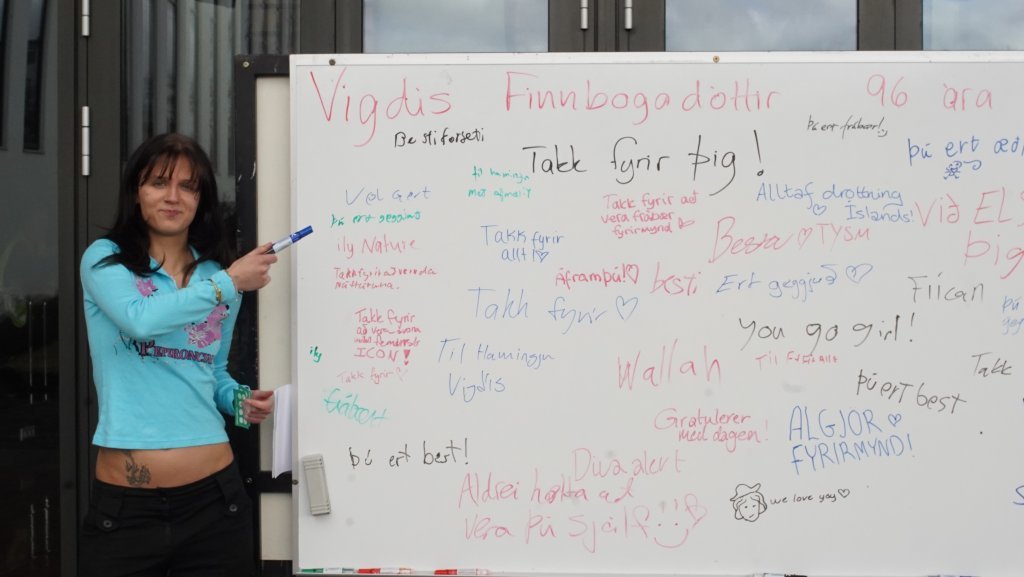 Vigdís Finnbogadóttir 96 ára
Besti forseti
Þú ert frábær!
Takk fyrir þig!
þú ert æði
til hamingju
með afmælið
Vel gert
þú ert geggjað
ily Nature
Takk fyrir að vernda
náttúruna.
Takk fyrir
allt!
Takk fyrir að
vera frábær
fyrirmynd
Alltaf drottning
Íslands!
Við ELS
þig
Bessa TYSM
Áfram þú!
besti
Ert geggjuð
Takk fyrir
Fíican
You go girl!
Takk fyrir
að vera svona
ICON!
ily
Takk fyrir
Til Hamingju
Vigdís
Wallah
Til
allt
Takk
þú ert best
þú ert best!
Gratulerer
med dagen!
ALGJÖR
FYRIRMYND!
Dua alert
Aldrei hætta að
vera þú sjálf
we love you